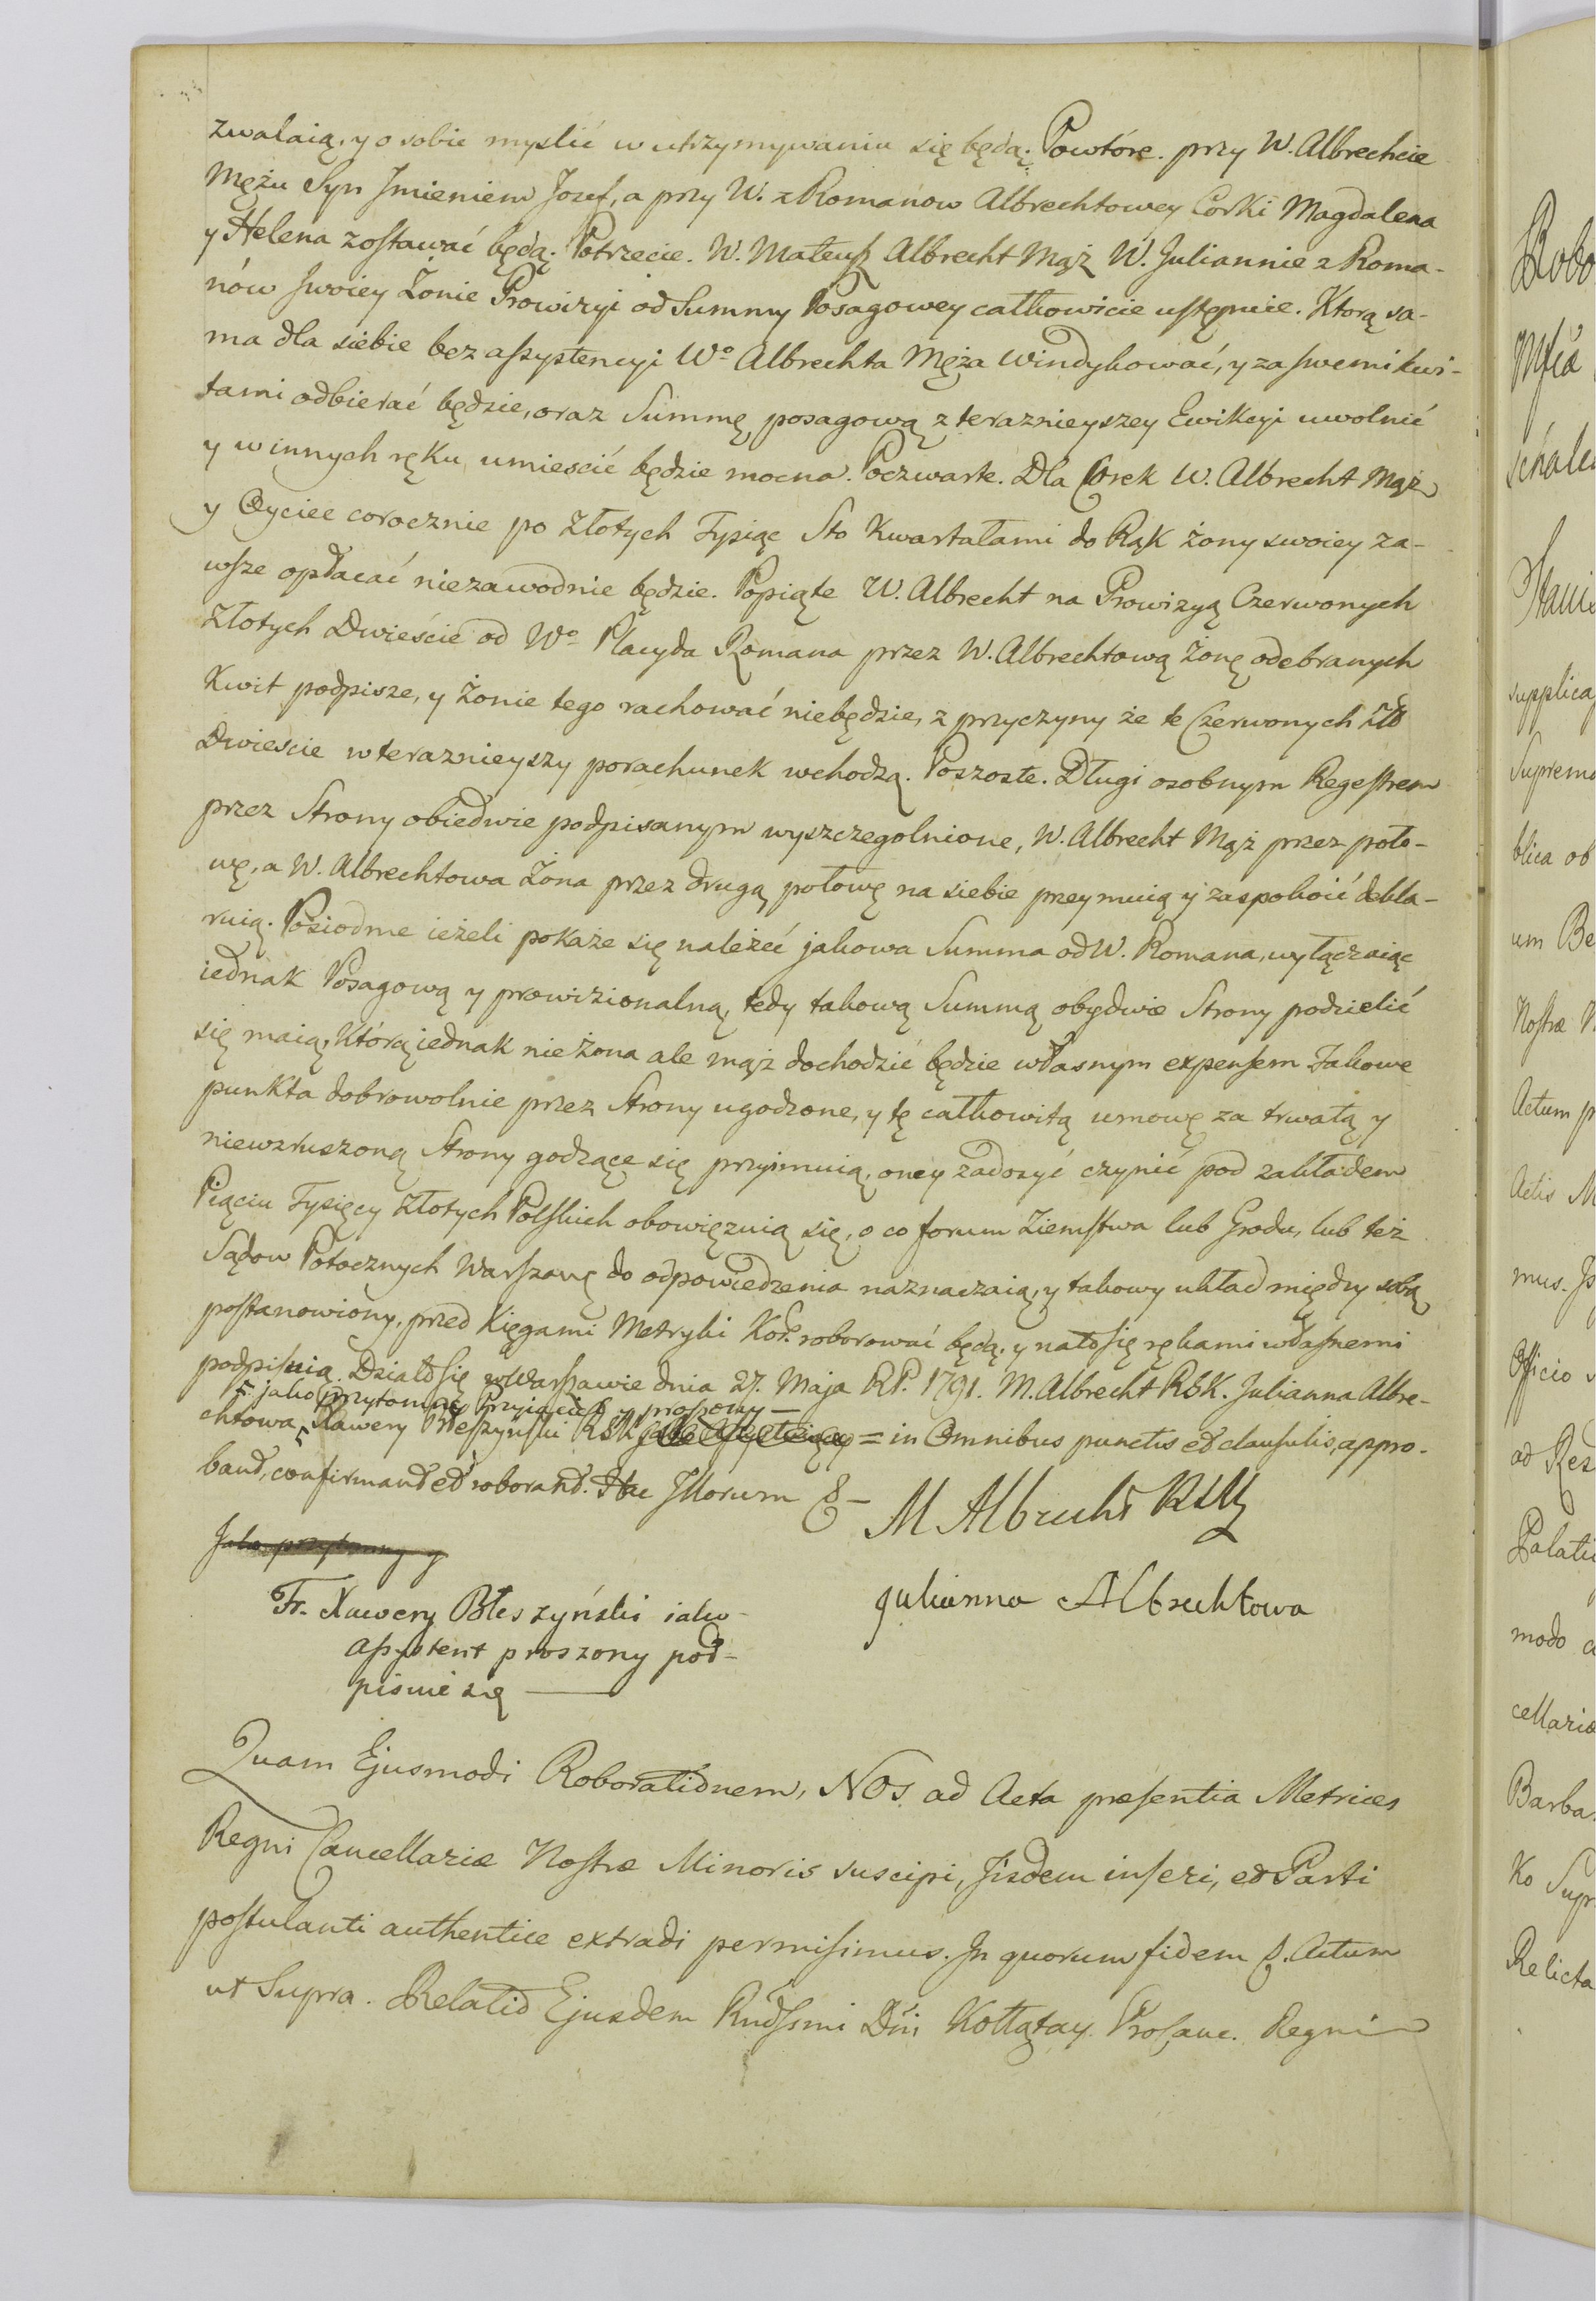 zwalaią, y o sobie myslić w utrzymywaniu się będą; Powtóre. przy W. Albrechcie
Mężu Syn Jmieniem Jozef, a przy W. z Romanow Albrechtowey Corki Magdalena
y Helena zostawać będą. Potrzecie. W. Mateusz Albrecht Mąż W. Juliannie z Roma-
nów swoiey Żonie Prowizyi od Summy Posagowey całkowicie ustępuie. Ktorą sa-
ma dla siebie bez assystencyi Wo Albrechta Męża windykować, y za swemi kwi-
tami odbierać będzie, oraz Summę posagową z teraznieyszey Ewikcyi uwolnić
y w innych ręku umiescić będzie mocna. Poczwarte. Dla Corek W. Albrecht Mąż
y Oyciec corocznie po Złotych Tysiąc Sto Kwartałami do Rąk żony swoiey za-
wsze opłacać niezawodnie będzie. Popiąte W. Albrecht na Prowizyą Czerwonych
Złotych Dwieście od Wo Placyda Romana przez W. Albrechtową Żonę odebranych
Kwit podpisze, y Żonie tego rachować niebędzie, z przyczyny że te Czerwonych Zło
Dwiescie w teraznieyszy porachunek wchodzą. Poszoste. Długi osobnym Regestrem
przez Strony obiedwie podpisanym wyszczegolnione, W. Albrecht Mąż przez poło-
wę, a W. Albrechtowa Żona przez drugą połowę na siebie przeymuią y zaspokoić dekla-
ruią. Posiodme ieżeli pokaże się należeć jakowa Summa od W. Romana, wyłączaiąc
iednak Posagową y prowizionalną, tedy takową Summą obydwie Strony podzielić
się maią, Którą iednak nie żona ale mąż dochodzić będzie własnym expensem. Takowe
punkta dobrowolnie przez Strony ugodzone, y tę całkowitą umowę za trwałą y
niewzruszoną Strony godzące się przyimuią, oney zadosyć czynić pod zakładem
Pięciu Tysięcy Złotych Polskich obowięzuią się, o co forum Ziemstwa lub Grodu, lub też
Sądow Potocznych Warszawę do odpowiedzenia naznaczaią, y takowy układ między sobą
postanowiony, przed Xięgami Metryki Kor. roborować będą, y nato się rękami własnemi
podpisuią. Działo się w Warszawie dnia 27. Maja RP. 1791. M. Albrecht RSK. Julianna Albre-
jako przytomny Przyiaciel y proszony —
chtowa, Xawery Błeszynski RSK = in Omnibus punctis et clausulis, appro-
band, confirmand et roborand. Hac Jllorum &— M Albrecht
Jako przytomny y
Fr. Xawery Błeszyński iako
Julianna Albrechtowa
assystent proszony pod-
pisuie się —
Quam Ejusmodi Roborationem, NOS ad Acta præsentia Metrices
Regni Cancellariæ Nostræ Minoris suscipi, Jisdem inseri, et Parti
postulanti authentice extradi permisimus. Jn quorum fidem &. Actum
ut Supra. Relatio Ejusdem Rndssmi Dni Kołłątay Procanc. Regni